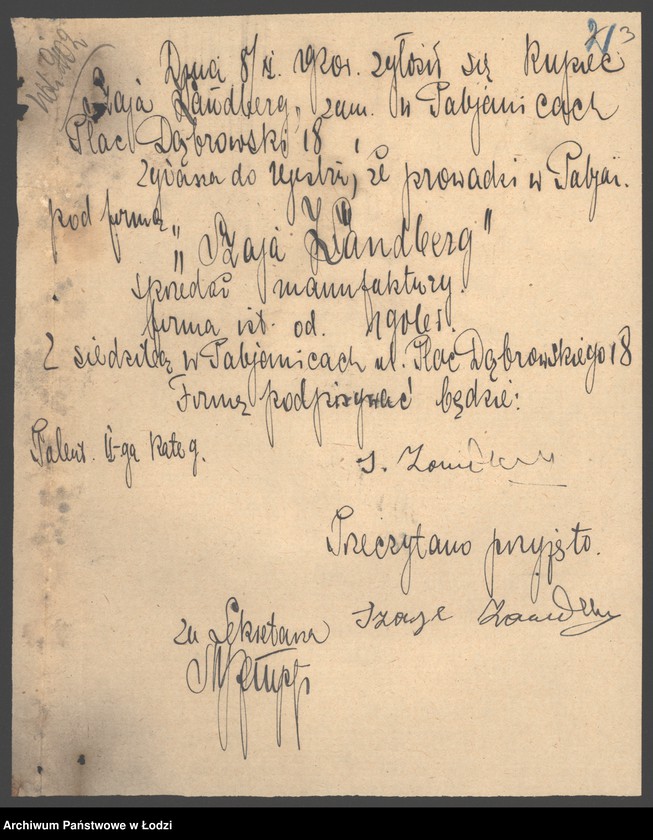 21 3
Dnia 8/X. zgłosił się kupiec
Szaja Zandberg, zam. w Pabjanicach
Plac Dąbrowski 18,
zgłasza do rejestru, że prowadzi w Pabjan.
pod firmą
"Szaja Zandberg"
sprzedaż manufaktury.
firma ist. od.
z siedzibą w Pabjanicach ul. Plac Dąbrowskiego 18
Firmę podpisywać będzie:
Patent. II-ga kateg.
S. Zandberg
Przeczytano przyjęto.
Szaja Zandberg
za Sekretarza
Archiwum Państwowe w Łodzi